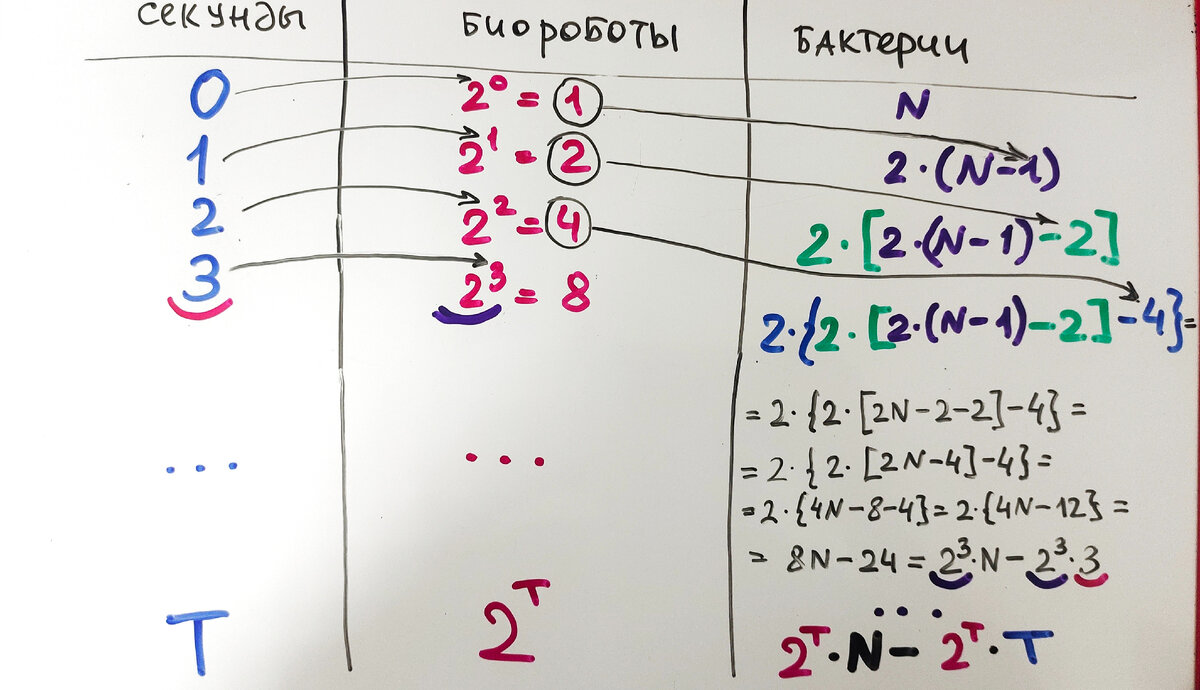 секунды биороботы бактерии
0 2⁰ = 1 N
1 2¹ = 2 2·(N-1)
2 2² = 4 2·[2·(N-1)-2]
3 2³ = 8 2·{2·[2·(N-1)-2]-4}=
=2·{2·[2N-2-2]-4}=
... ... =2·{2·[2N-4]-4}=
=2·{4N-8-4}=2·{4N-12}=
= 8N-24 = 2³·N-2³·3
...
T 2ᵀ 2ᵀ·N- 2ᵀ·T